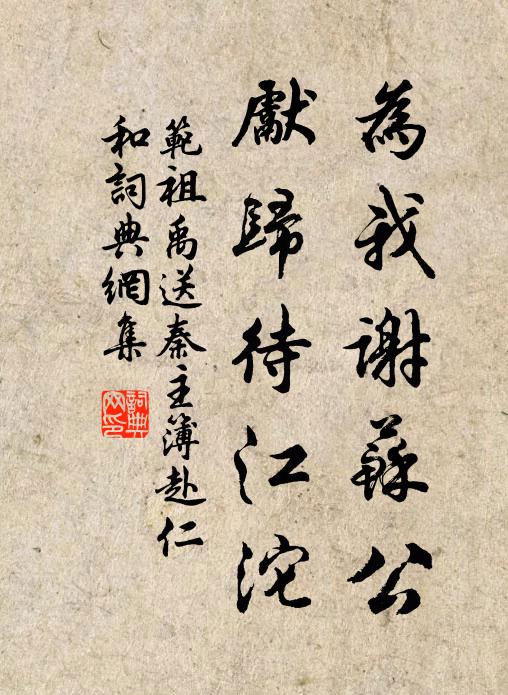 為我謝蘇公
獻歸待江沱
範祖禹送秦主簿赴仁
和詞典網集
詞典
网印